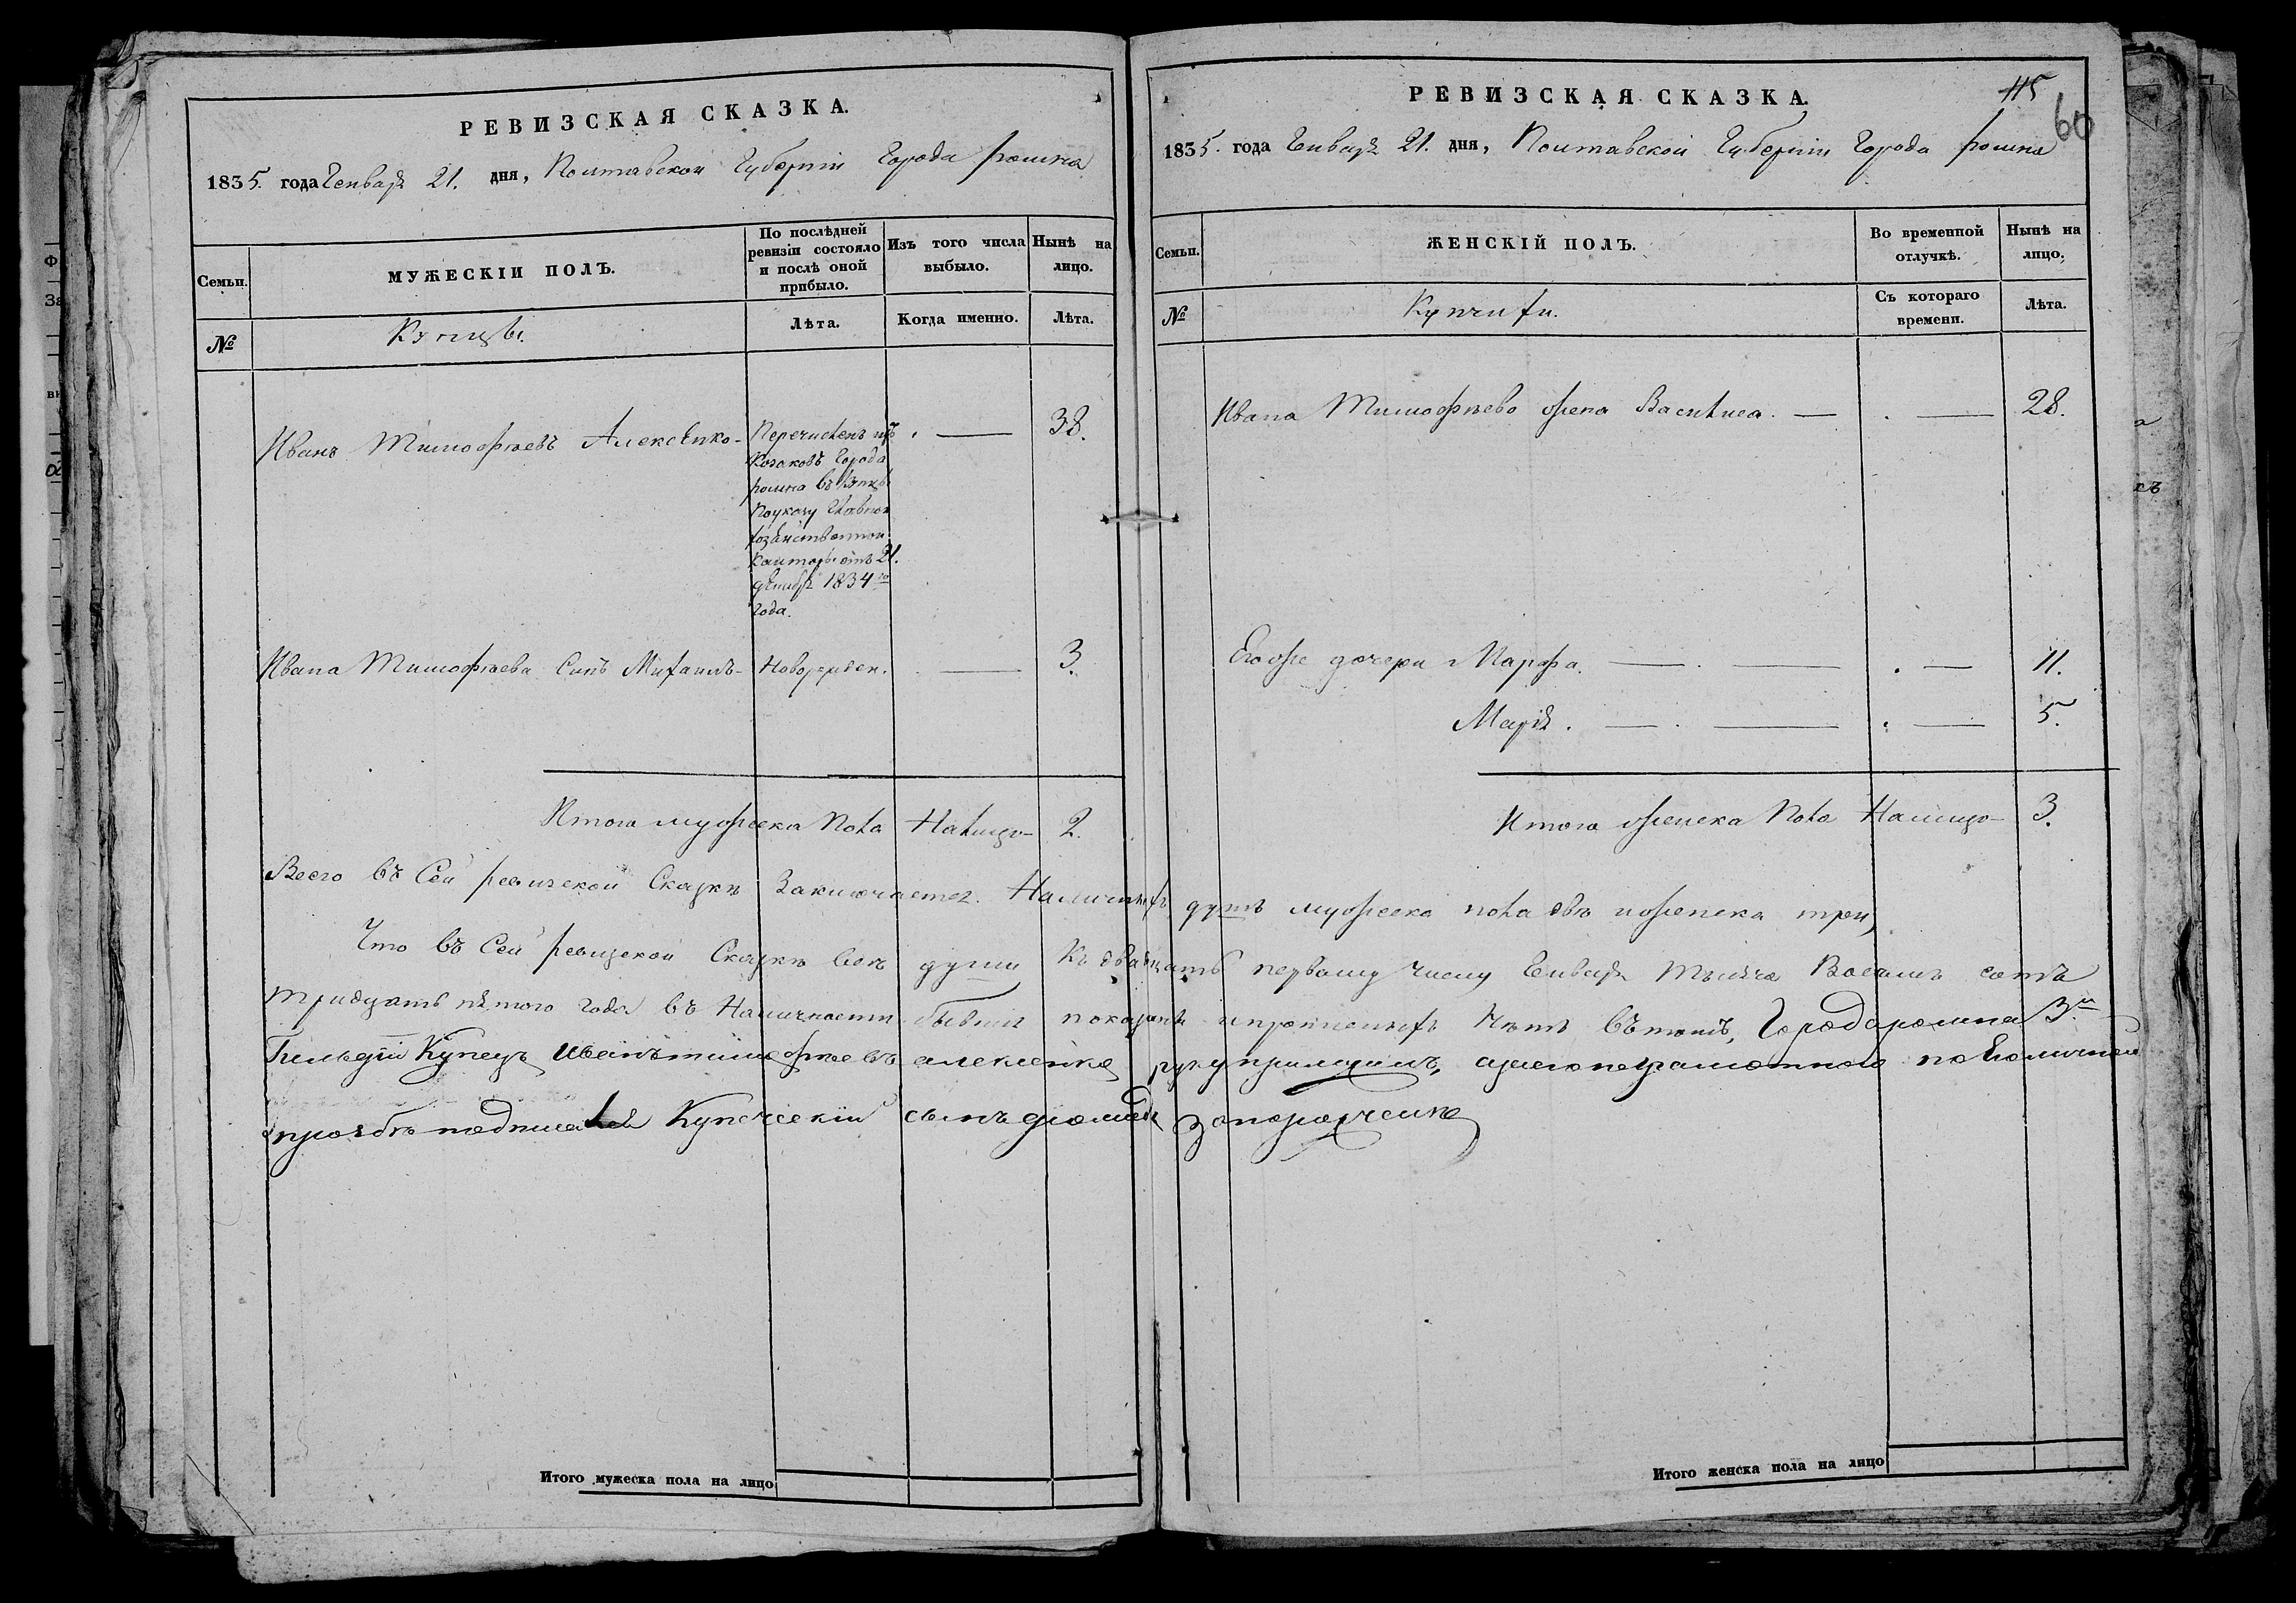 РЕВИЗСКАЯ СКАЗКА.
1835. года Генваря 21. дня, Полтавской Губернии Города ромна
Семьи.
МУЖЕСКІЙ ПОЛЪ.
По послѣдней
ревизіи состояло
и послѣ оной
прибыло.
Изъ того числа
выбыло.
Нынѣ на
лицо.
№
Купцы.
Лѣта.
Когда именно.
Лѣта.
Иванъ Тимофѣевъ Алексѣнко
38.
Перечисленъ изъ
Козаковъ Города
ромна въ купцы
По указу
Конторы отъ 21.
декабря 1834го
Года.
Ивана Тимофѣева Сынъ Михаилъ
Новорожден.
3.
Итого мужеска Пола Налицо 2.
РЕВИЗСКАЯ СКАЗКА.
115
60
1835. года Генваря 21. дня, Полтавской Губерніи Города ромна
Семьи.
ЖЕНСКІЙ ПОЛЪ.
Во временной
отлучкѣ.
Нынѣ на
лицо.
№
Купчихи.
Съ котораго
времени.
Лѣта.
Ивана Тимофѣева жена Василиса.
28.
Его же дочери Марфа.
11.
Марія.
5.
Итого женска Пола Налицо 3.
Всего въ Сей ревизской Сказкѣ Заключается Наличныхъ душъ мужеска пола двѣ и женска три,
Что въ Сей ревизской Сказкѣ всѣ души Къ двадцать первому числу Генваря тысяча Восемь сотъ
тридцать пятого Года въ Наличности бывши показаны и пропеныхъ Нѣтъ въ томъ, Города ромна 3й
Гильдіи Купецъ Иванъ тимофѣевъ алексенко руку приложилъ, а неграмотного по Его личной
прозбѣ подписался Купеческій сынъ Запорожченко
Итого мужеска пола на лицо
Итого женска пола на лицо